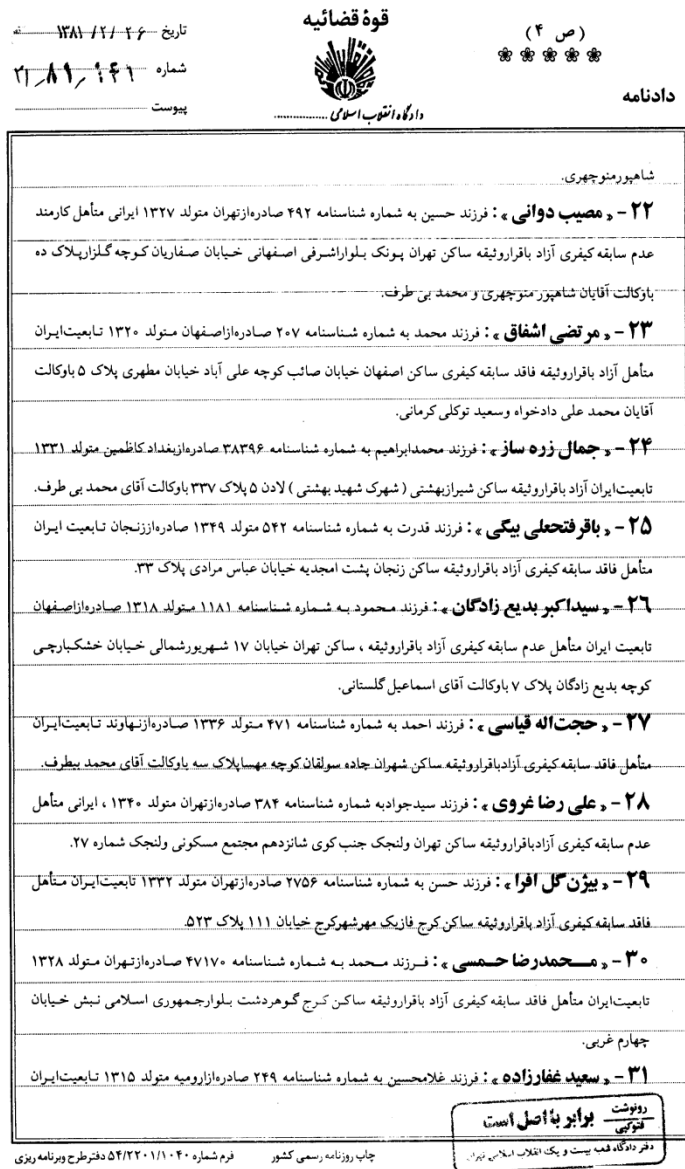 (ص ۴)
دادنامه
قوهٔ قضائیه
دادگاه انقلاب اسلامی
تاریخ ۱۳۸۱/۲/۲۶
شماره
پیوست
شاهپورمنوچهری.
۲۲ - « مصیب دوانی » : فرزند حسین به شماره شناسنامه ۴۹۲ صادره‌ازتهران متولد ۱۳۲۷ ایرانی متأهل کارمند
عدم سابقه کیفری آزاد باقراروثیقه ساکن تهران پونک بلواراشرفی اصفهانی خیابان صفاریان کوچه گلزارپلاک ده
باوکالت آقایان شاهپور منوچهری و محمد بی طرف.
۲۳ - « مرتضی اشفاق » : فرزند محمد به شماره شناسنامه ۲۰۷ صادره‌ازاصفهان متولد ۱۳۲۰ تابعیت‌ایران
متأهل آزاد باقراروثیقه فاقد سابقه کیفری ساکن اصفهان خیابان صائب کوچه علی آباد خیابان مطهری پلاک ۵ باوکالت
آقایان محمد علی دادخواه وسعید توکلی کرمانی.
۲۴ - « جمال زره ساز » : فرزند محمدابراهیم به شماره شناسنامه ۳۸۳۹۶ صادره‌ازبغداد کاظمین متولد ۱۳۳۱
تابعیت‌ایران آزاد باقراروثیقه ساکن شیرازبهشتی ( شهرک شهید بهشتی ) لادن ۵ پلاک ۳۳۷ باوکالت آقای محمد بی طرف.
۲۵ - « باقر فتحعلی بیگی » : فرزند قدرت به شماره شناسنامه ۵۴۲ متولد ۱۳۴۹ صادره‌اززنجان تابعیت ایران
متأهل فاقد سابقه کیفری آزاد باقراروثیقه ساکن زنجان پشت امجدیه خیابان عباس مرادی پلاک ۳۳.
۲۶ - « سیداکبر بدیع زادگان » : فرزند محمود به شماره شناسنامه ۱۱۸۱ متولد ۱۳۱۸ صادره‌ازاصفهان
تابعیت ایران متأهل عدم سابقه کیفری آزاد باقراروثیقه ، ساکن تهران خیابان ۱۷ شهریورشمالی خیابان خشکبارچی
کوچه بدیع زادگان پلاک ۷ باوکالت آقای اسماعیل گلستانی.
۲۷ - « حجت‌اله قیاسی » : فرزند احمد به شماره شناسنامه ۴۷۱ متولد ۱۳۳۶ صادره‌ازنهاوند تابعیت‌ایران
متأهل فاقد سابقه کیفری آزادباقراروثیقه ساکن شهران جاده سولقان کوچه مهساپلاک سه باوکالت آقای محمد بیطرف.
۲۸ - « علی رضا غروی » : فرزند سیدجوادبه شماره شناسنامه ۳۸۴ صادره‌ازتهران متولد ۱۳۴۰ ، ایرانی متأهل
عدم سابقه کیفری آزادباقراروثیقه ساکن تهران ولنجک جنب کوی شانزدهم مجتمع مسکونی ولنجک شماره ۲۷.
۲۹ - « بیژن گل افرا » : فرزند حسن به شماره شناسنامه ۲۷۵۶ صادره‌ازتهران متولد ۱۳۳۲ تابعیت‌ایران متأهل
فاقد سابقه کیفری آزاد باقراروثیقه ساکن کرج فازیک مهرشهرکرج خیابان ۱۱۱ پلاک ۵۲۳.
۳۰ - « محمدرضا حمسی » : فرزند محمد به شماره شناسنامه ۴۷۱۷۰ صادره‌ازتهران متولد ۱۳۲۸
تابعیت‌ایران متأهل فاقد سابقه کیفری آزاد باقراروثیقه ساکن کرج گوهردشت بلوارجمهوری اسلامی نبش خیابان
چهارم غربی.
۳۱ - « سعید غفارزاده » : فرزند غلامحسین به شماره شناسنامه ۲۴۹ صادره‌ازارومیه متولد ۱۳۱۵ تابعیت‌ایران
رونوشت
فتوکپی
برابر بااصل است
دفتر دادگاه شعبه بیست و یک انقلاب اسلامی تهران
چاپ روزنامه رسمی کشور
فرم شماره ۵۴/۲۲۰۱/۱۰۴۰ دفترطرح وبرنامه ریزی